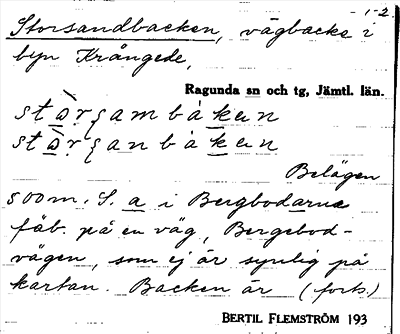 1-2.
Storsandbacken, vägbacke i
byn Krångede,
Ragunda sn och tg, Jämtl. län.
Belägen
500m. S. a i Bergbodarna
fäb. på en väg, Bergebod-
vägen, som ej är synlig på
kartan. Backen är (forts.)
BERTIL FLEMSTRÖM 193